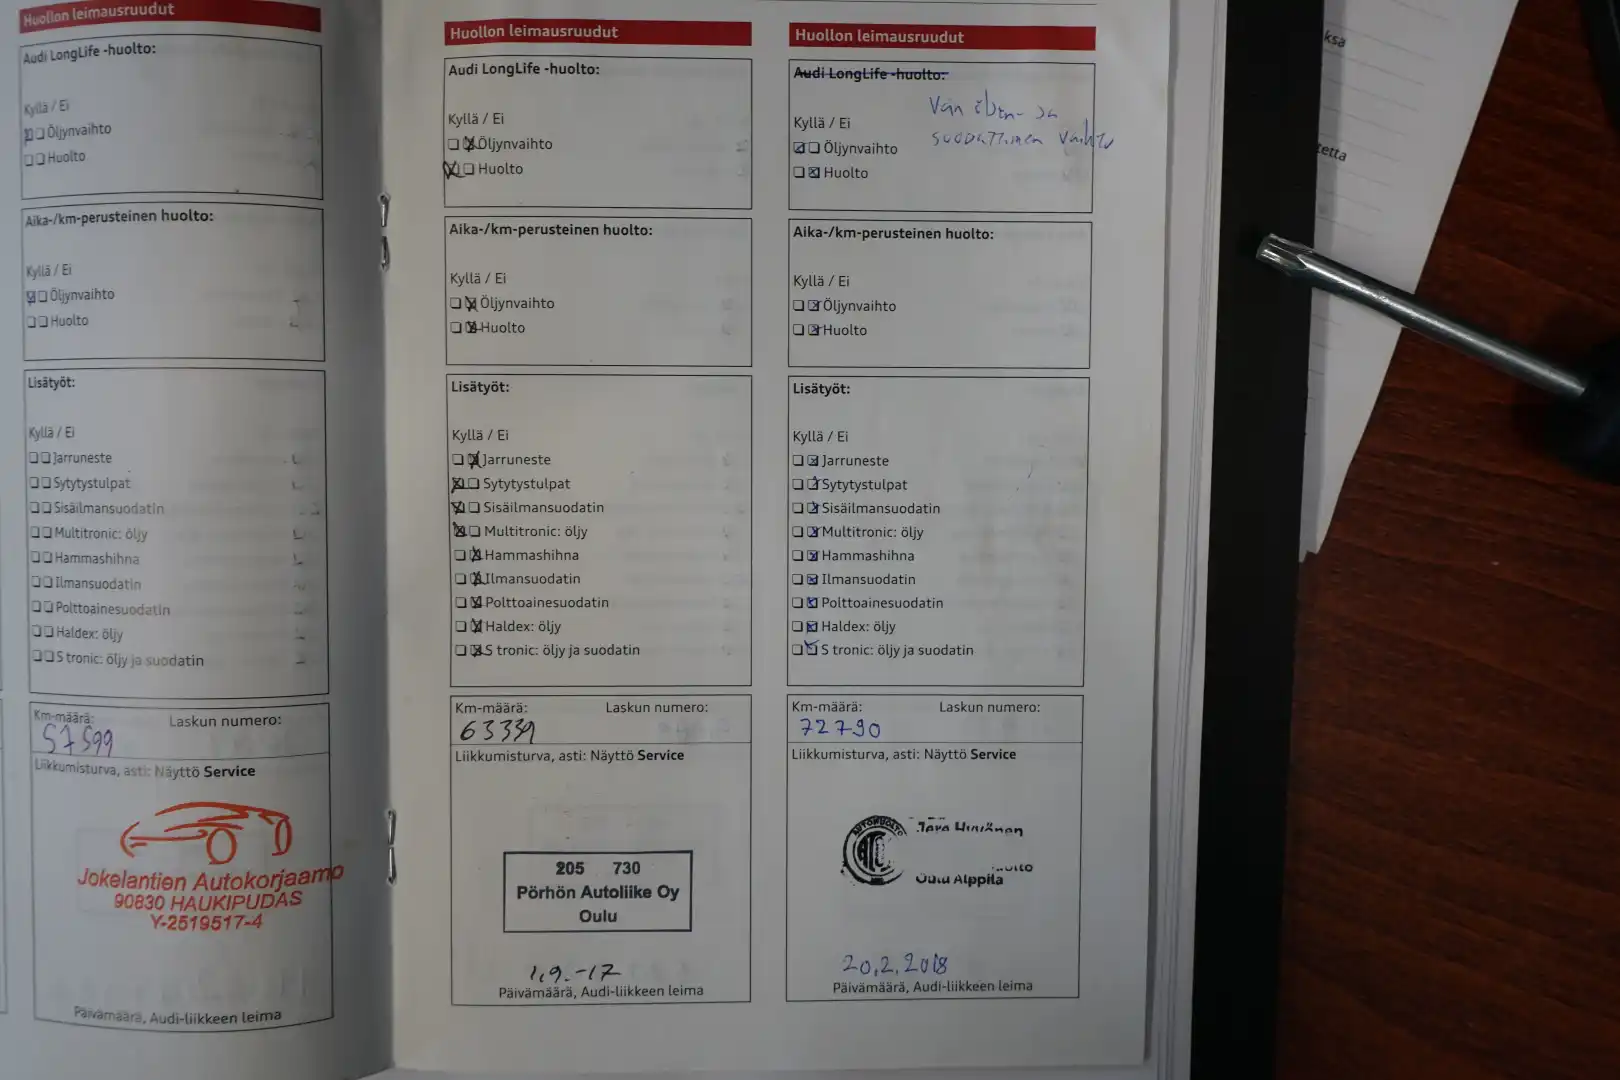 Huollon leimausruudut
Audi LongLife -huolto:
Kyllä / Ei
Öljynvaihto
Huolto
Aika-/km-perusteinen huolto:
Kyllä / Ei
Öljynvaihto
Huolto
Lisätyöt:
Kyllä / Ei
Jarruneste
Sytytystulpat
Sisäilmansuodatin
Multitronic: öljy
Hammashihna
Ilmansuodatin
Polttoainesuodatin
Haldex: öljy
S tronic: öljy ja suodatin
Km-määrä: Laskun numero:
57599
Liikkumisturva, asti: Näyttö Service
Jokelantien Autokorjaamo
90830 HAUKIPUDAS
Y-2519517-4
Päivämäärä, Audi-liikkeen leima
Huollon leimausruudut
Audi LongLife -huolto:
Kyllä / Ei
Öljynvaihto
Huolto
Aika-/km-perusteinen huolto:
Kyllä / Ei
Öljynvaihto
Huolto
Lisätyöt:
Kyllä / Ei
Jarruneste
Sytytystulpat
Sisäilmansuodatin
Multitronic: öljy
Hammashihna
Ilmansuodatin
Polttoainesuodatin
Haldex: öljy
S tronic: öljy ja suodatin
Km-määrä: Laskun numero:
63339
Liikkumisturva, asti: Näyttö Service
205 730
Pörhön Autoliike Oy
Oulu
1.9.-17
Päivämäärä, Audi-liikkeen leima
Huollon leimausruudut
Audi LongLife -huolto:
Vain öljyn- ja
suodattimen vaihto
Kyllä / Ei
Öljynvaihto
Huolto
Aika-/km-perusteinen huolto:
Kyllä / Ei
Öljynvaihto
Huolto
Lisätyöt:
Kyllä / Ei
Jarruneste
Sytytystulpat
Sisäilmansuodatin
Multitronic: öljy
Hammashihna
Ilmansuodatin
Polttoainesuodatin
Haldex: öljy
S tronic: öljy ja suodatin
Km-määrä: Laskun numero:
72790
Liikkumisturva, asti: Näyttö Service
AUTOHUOLTO
Oulu Alppila
20.2.2018
Päivämäärä, Audi-liikkeen leima
ksa
tetta